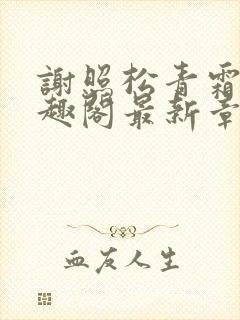 謝照松青霜
趣閣最新章
血友人生